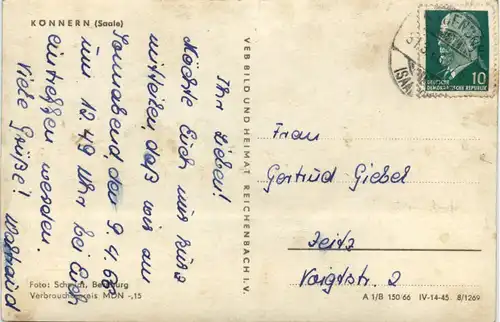 KÖNNERN (Saale)
Ihr Lieben!
Möchte Euch nur kurz
mitteilen, daß wir am
Sonnabend, der 9.4.66
um 12.49 Uhr bei Euch
eintreffen werden.
Viele Grüße! Waltraud
Foto: Schmidt, Bernburg
Verbraucherpreis MDN -,15
VEB BILD UND HEIMAT REICHENBACH I. V.
10
DEUTSCHE
DEMOKRATISCHE REPUBLIK
Frau
Gertrud Giebel
Zeitz
Voigtstr. 2
A 1/B 150/66 IV-14-45 8/1269